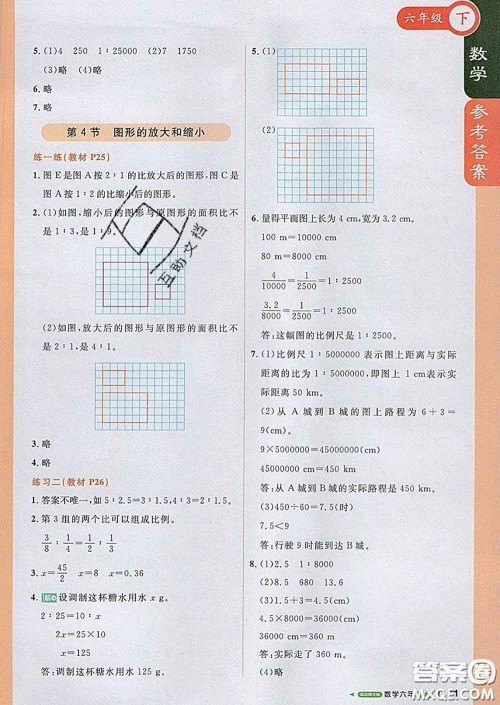 六年级 下
数学
参考答案
5. (1)4 250 1∶25000 (2)7 1750
(3)略 (4)略
6. 略
7. 略
第4节 图形的放大和缩小
练一练(教材 P25)
1. 图E是图A按2∶1的比放大后的图形,图C是
图A按1∶2的比缩小后的图形。
2. (1)如图,缩小后的图形与原图形的面积比不
是1∶3,是1∶9。
(2)如图,放大后的图形与原图形的面积比不
是2∶1,是4∶1。
3. 略
4. 略
练习二(教材 P26)
1. 答案不唯一,如5∶2.5=3∶1.5,5∶3=2.5∶1.5
2. 第3组的两个比可以组成比例。
3/8∶1/4=3/4∶1/2
3. x=45/2 x=8 x=0.36
4. 设调制这杯糖水用水 x g。
2∶25=10∶x
2x=25×10
x=125
答:调制这杯糖水用水 125 g。
5. (1)
(2)
6. 量得平面图上长为 4 cm,宽为 3.2 cm。
100 m=10000 cm
80 m=8000 cm
4/10000=1/2500=1∶2500
3.2/8000=1/2500=1∶2500
答:这幅图的比例尺是1∶2500。
7. (1)比例尺 1∶5000000 表示图上距离与实际
距离的比是 1∶5000000,表示图上 1 cm 的
距离表示实际距离 50 km。
(2)从 A 城到 B 城的图上路程为 6+3=
9(cm)
9×5000000=45000000(cm)
45000000 cm=450 km
答:从A城到B城的实际路程是 450 km。
(3)450÷60=7.5(时)
7.5<9
答:行驶 9 时能到达 B 城。
8. (1)22.5 2.5 1∶8000
(2)8.5 680 13.6
(3)1.5+3=4.5(cm)
4.5×8000=36000(cm)
36000 cm=360 m
答:实际走了 360 m。
(4)略
互助文档
数学六年
答案圈
MXQE.COM